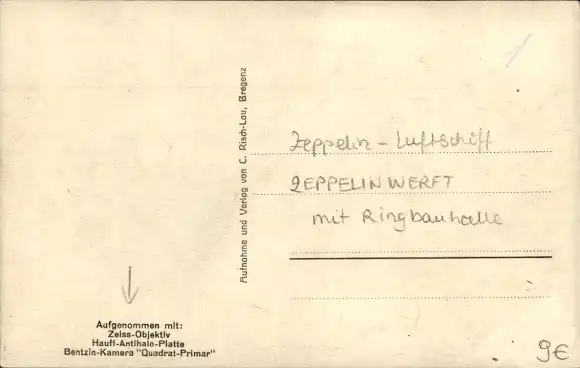 Aufnahme und Verlag von C. Risch-Lau, Bregenz
Zeppelin - Luftschiff
ZEPPELIN WERFT
mit Ringbauhalle
Aufgenommen mit:
Zeiss-Objektiv
Hauff-Antihalo-Platte
Bentzin-Kamera "Quadrat-Primar"
9€